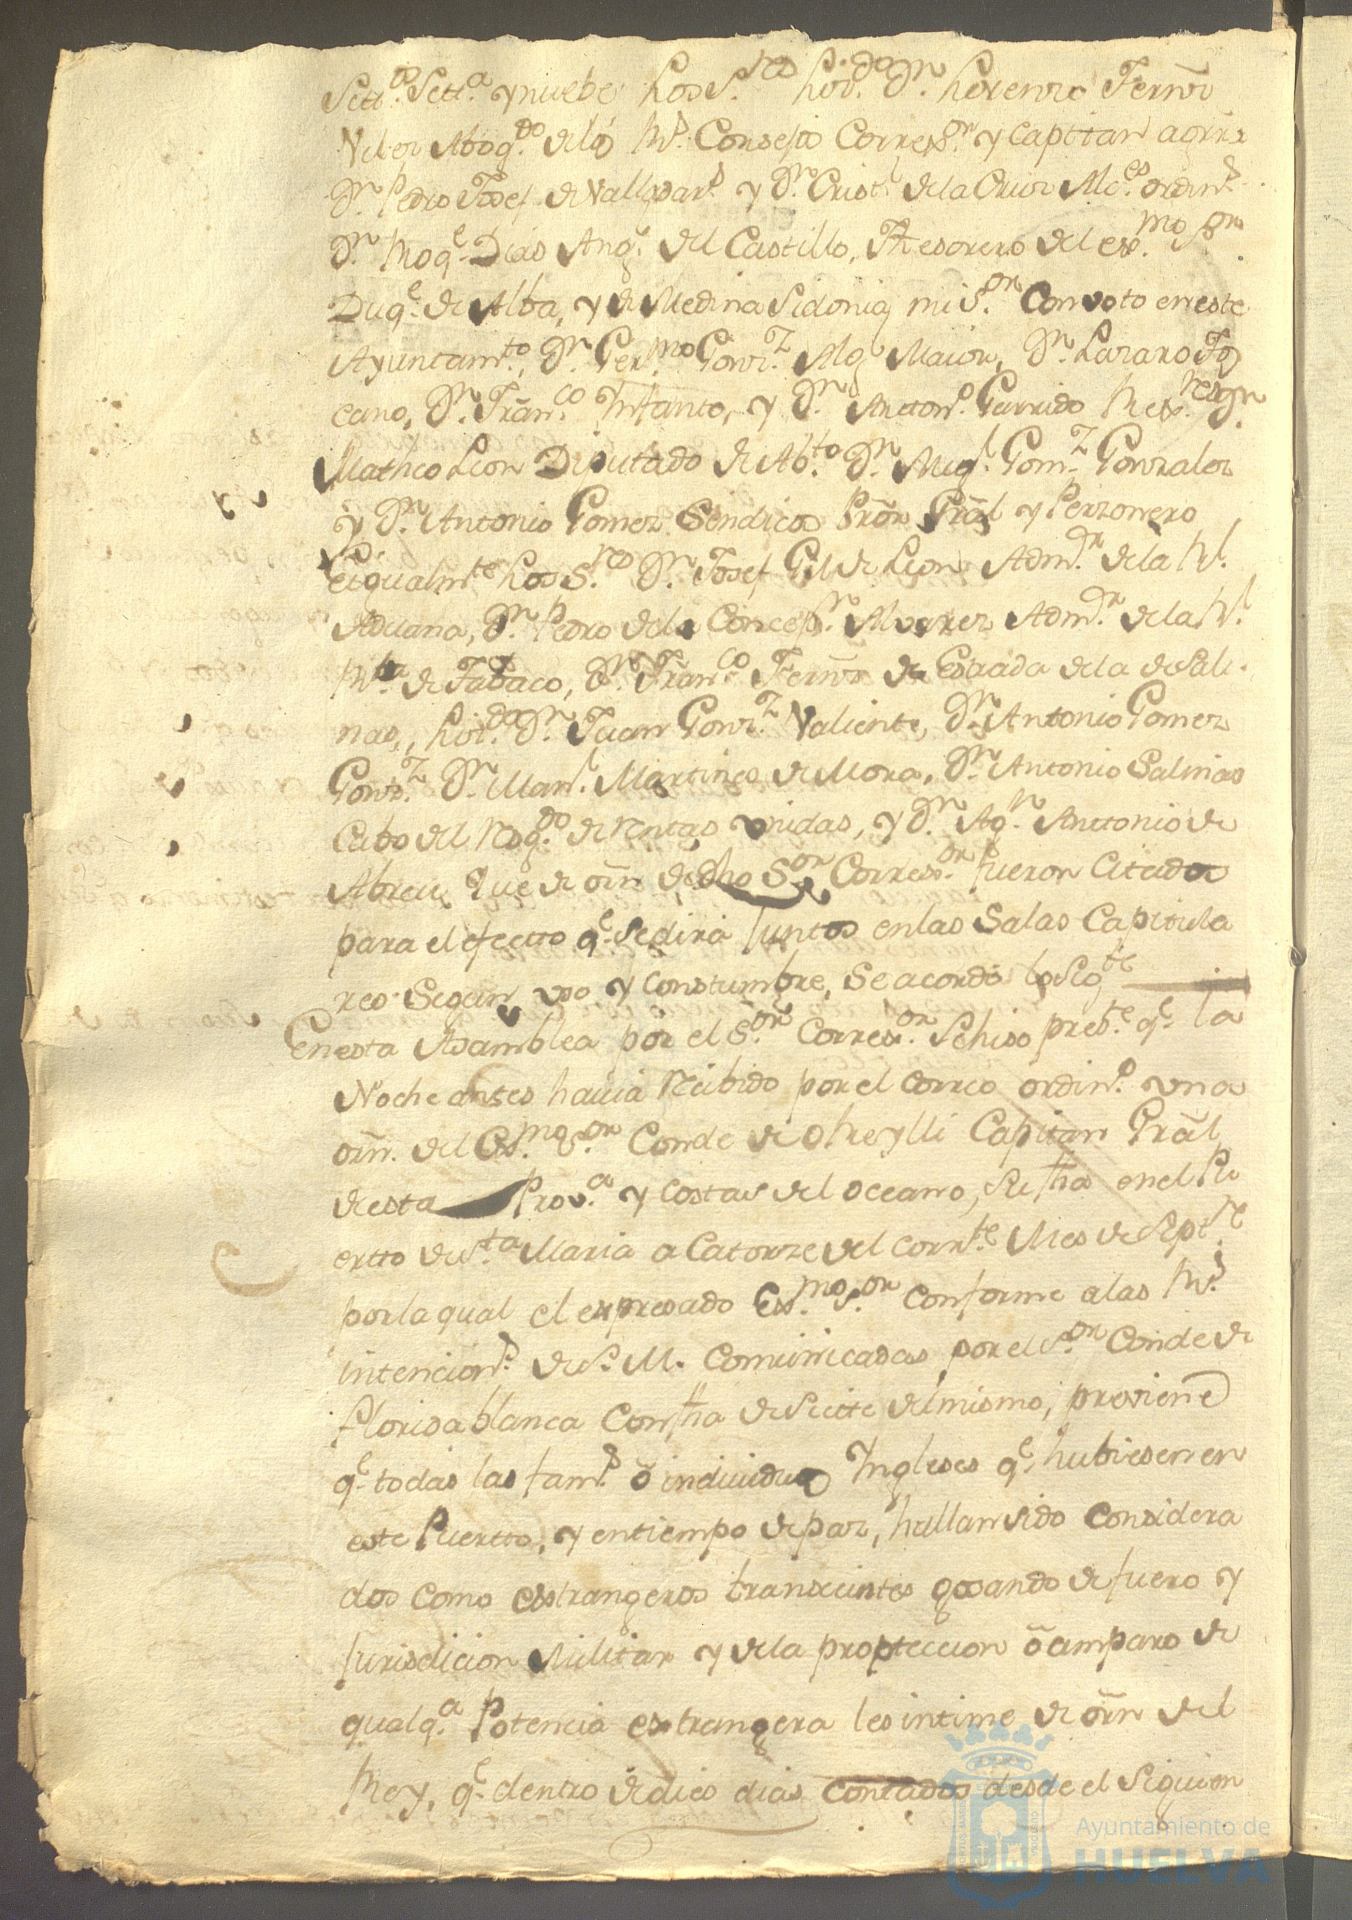 Sett.os Sett.a y nuebe los S.res Liz.do Dn. Lorenzo Fernz
Velez Abog.do de los R.s Consejos Correx.or y Capitan a grra
Dn. Pedro Josef de Vallejo y Dn. Crist.l de la Cruz Alc.es ordin.s
Dn. Roq.e Dias Ang.l del Castillo, Thesorero del ex.mo s.or
Duq.e de Alba, y de Medina Sidonia mi S.or Con voto en este
Ayuntam.to, Dn. Ger.mo Gonz.z Alg.l Maior, Dn. Lazaro
cano, Dn. Fran.co Infante, y Dn. Anton.o Garrido Rex.res Dn.
Matheo Leon Diputado de Ab.to Dn. Mig.l Gom.z Gonzalez
y Dn. Antonio Gomez Sendicos Prōr Grāl y Perzonero
e igualm.te los S.res Dn. Josef Gil de Leon Adm.or de la R.l
Aduana, Dn. Pedro de la Concep.n Alvarez Adm.or de la R.l
R.ta de Tabaco, Dn. Fran.co Fernz de Estrada de la de Sali-
nas, Liz.do Dn. Juan Gonz.z Valiente, Dn. Antonio Gomez
Gonz.z Dn. Man.l Martines de Mora, Dn. Antonio Salinas
Cabo del Resg.do de Rentas unidas, y Dn. Ag.n Anttonio de
Abreu que de orn de dho S.or Correx.or fueron Citados
para el efectto q.e se dira Juntos en las Salas Capitula
res segun uso y constumbre, se acordó lo sig.te
En esta Asamblea por el S.or Correx.or se hiso pres.te q.e la
Noche antes havia Recibido por el correo ordin.o una
orn. del Ex.mo S.or Conde de O Reylli Capitan Grāl
de esta Prov.a y costas del oceano, su fha en el Pu
ertto de S.ta Maria a Catorze del corr.te Mes de Sept.re
por la qual el expresado Ex.mo S.or conforme a las R.s
intencion.s de S. M. comunicadas por el S.or Conde de
floridablanca con fha de Siette del mismo, previene
q.e todas las fam.s ō individuos Ingleses q.e hubiesen en
este Puertto, y en tiempo de paz, hallan sido considera
dos como extrangeros transeuntes gosando de fuero y
Jurisdicion Militar y de la proteccion ō amparo de
qualq.a Potencia extrangera les intime de orn del
Rey, q.e dentro de dies dias contados desde el siguien
Ayuntamiento de
HUELVA